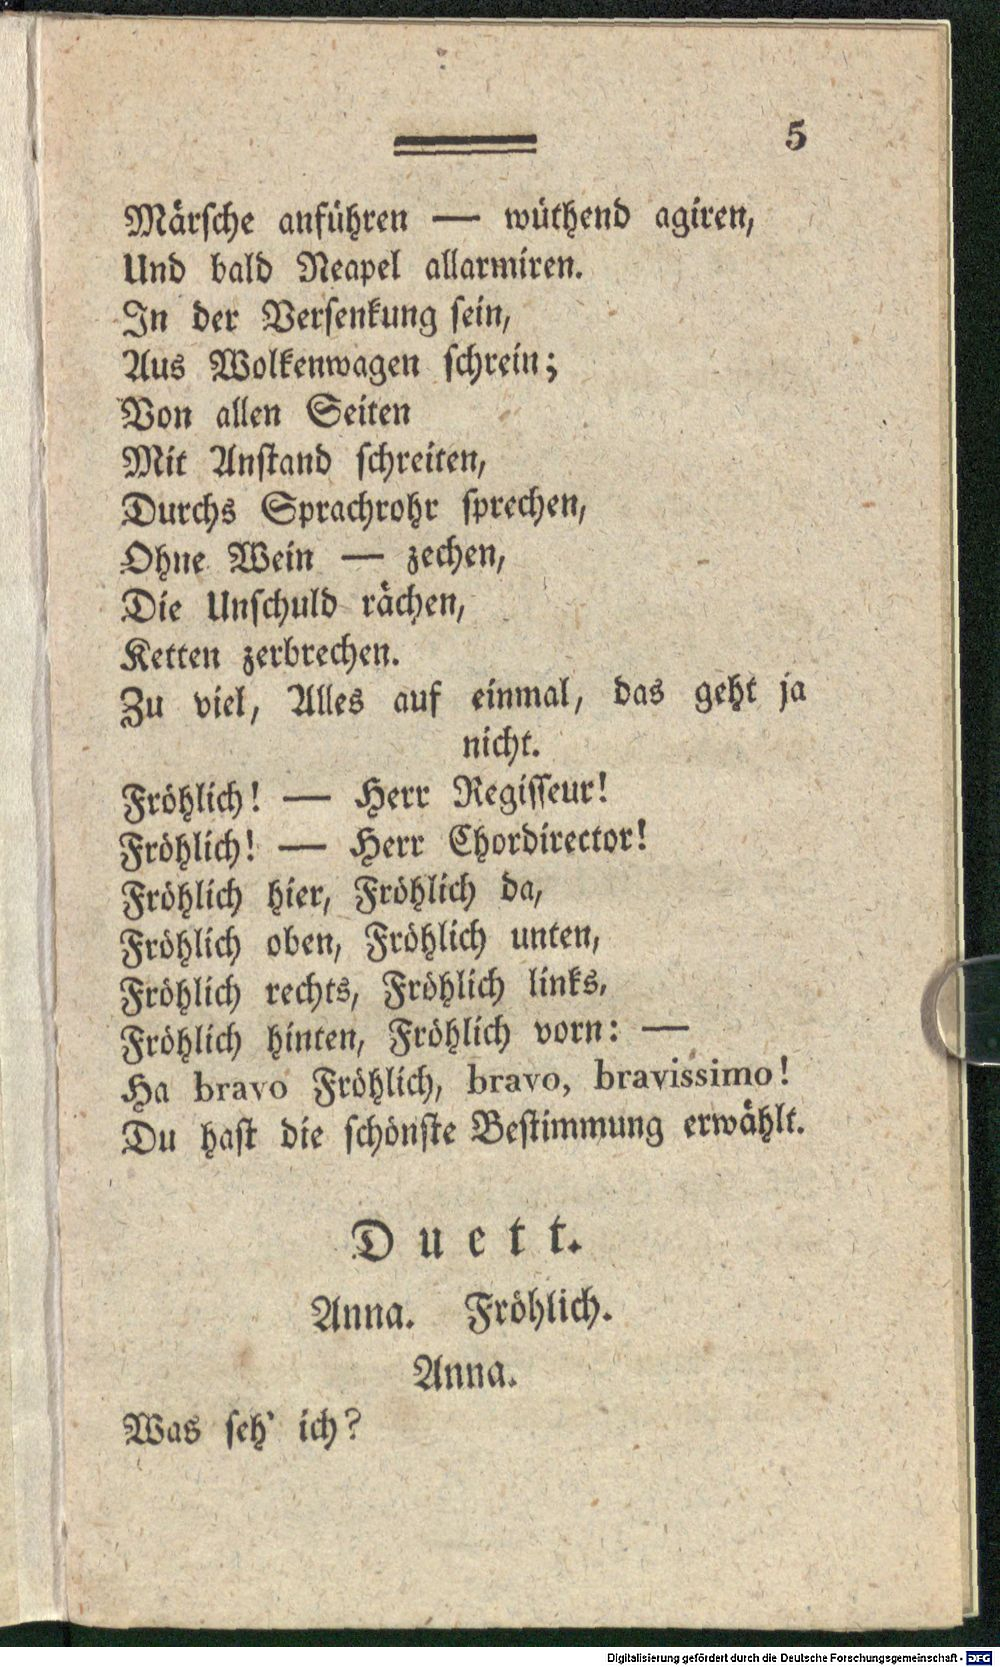 5
Märsche anführen — wüthend agiren,
Und bald Neapel allarmiren.
In der Versenkung sein,
Aus Wolkenwagen schrein;
Von allen Seiten
Mit Anstand schreiten,
Durchs Sprachrohr sprechen,
Ohne Wein — zechen,
Die Unschuld rächen,
Ketten zerbrechen.
Zu viel, Alles auf einmal, das geht ja
nicht.
Fröhlich! — Herr Regisseur!
Fröhlich! — Herr Chordirector!
Fröhlich hier, Fröhlich da,
Fröhlich oben, Fröhlich unten,
Fröhlich rechts, Fröhlich links,
Fröhlich hinten, Fröhlich vorn: —
Ha bravo Fröhlich, bravo, bravissimo!
Du hast die schönste Bestimmung erwählt.
Duett.
Anna. Fröhlich.
Anna.
Was seh' ich?
Digitalisierung gefördert durch die Deutsche Forschungsgemeinschaft - DFG